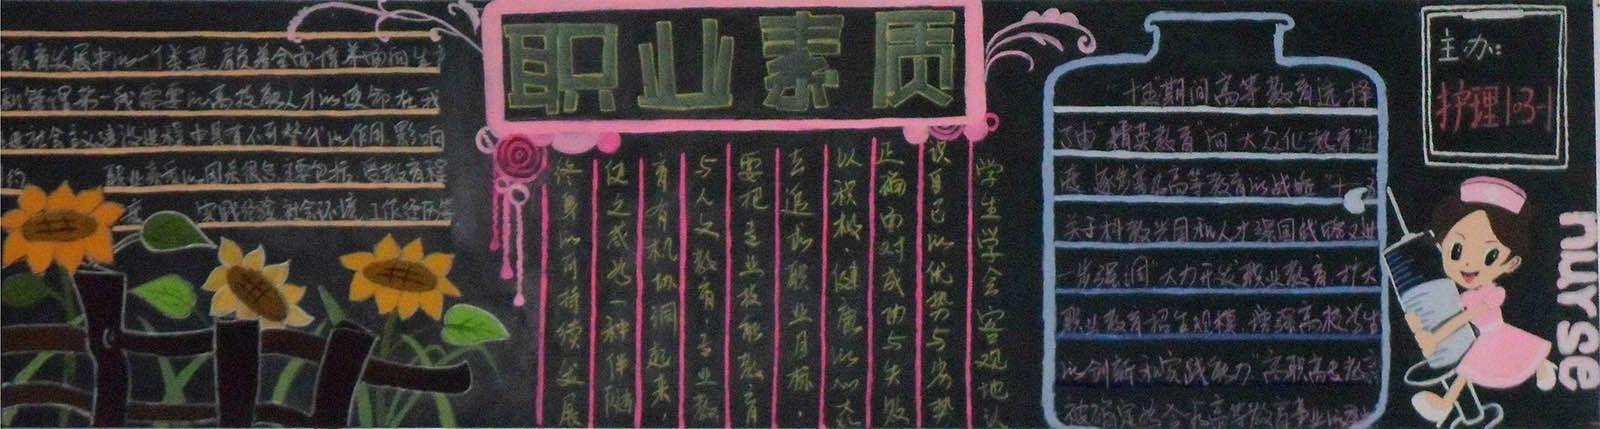 职业素质
教育发展中的一个类型，肩负着全面
到管理第一线需要的高技能人才的使命在我
进社会主义建设进程中具有不可替代的作用 影响
职业素质的因素很多 主要包括 受教育程
度 实践经验 社会环境 工作经历
学生学会客观地认
识自己的优势与劣势
正确面对成功与失败
以积极、健康的心态
去追求职业目标，
要把专业技能教育
与人文教育、专业教
育有机协调起来，
使之成为一种伴随
终身的可持续发展
十五期间高等教育选择
了由"精英教育"向"大众化教育"
逐步普及高等教育的战略
关于科教兴国和人才强国战略
一步强调"大力开发职业教育 扩大
职业教育招生规模
的创新和实践能力"高职高专教
主办:
护理103-1
nurse